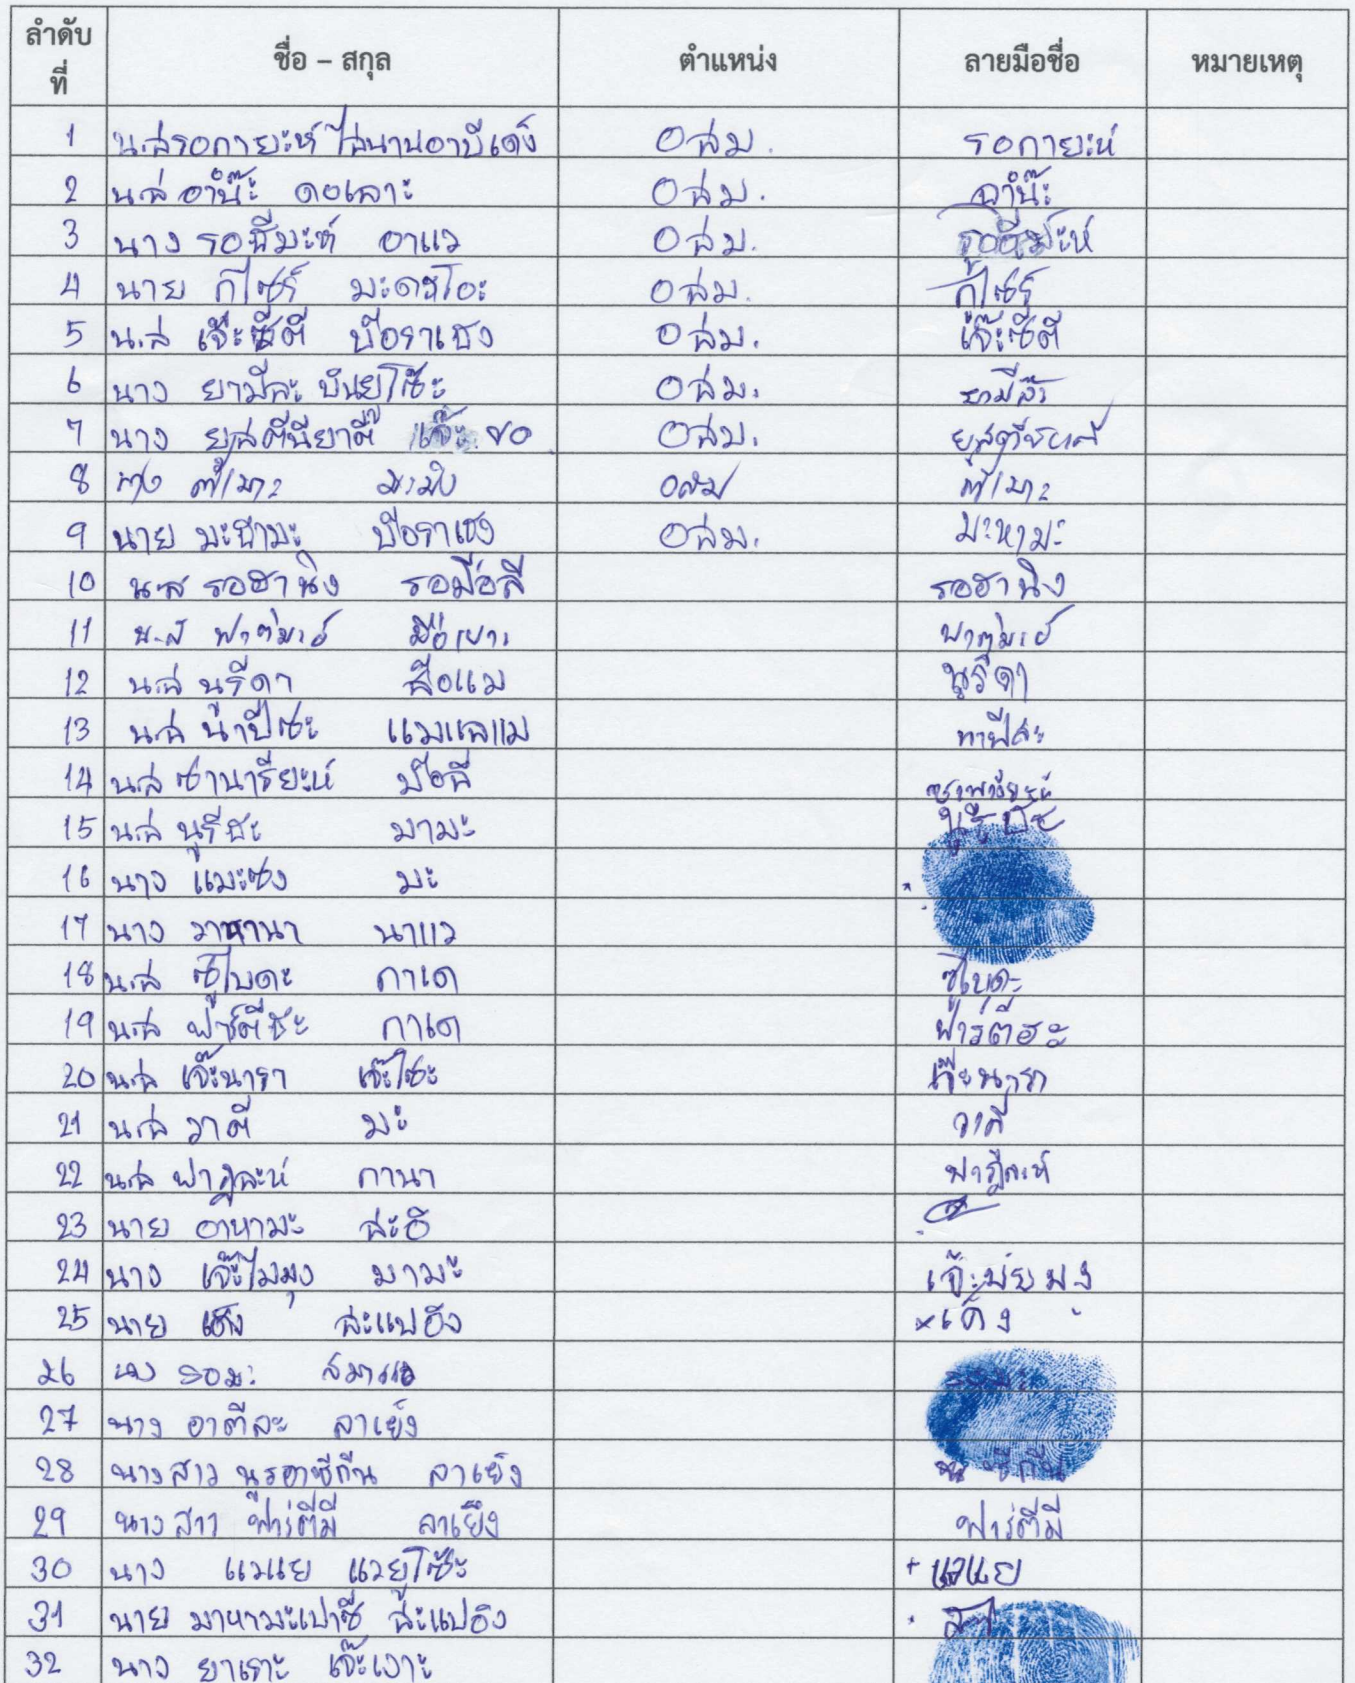 ลำดับที่ ชื่อ – สกุล ตำแหน่ง ลายมือชื่อ หมายเหตุ
1 น.ส รอกายะห์ ไลนานอาบีเด้ง อสม. รอกายะห์
2 น.ส อำนี๊ะ ดอเลาะ อสม. อำนี๊ะ
3 นาง รอฮีมะห์ อาแว อสม. รอฮีมะห์
4 นาย กูไซร์ อสม. กูไซร์
5 น.ส เจ๊ะซีตี บือราเฮง อสม. เจ๊ะซีตี
6 นาง ยามีละ บินยูโซ๊ะ อสม. ยามีล๊ะ
7 นาง อสม.
8 มะมิง อสม
9 นาย มะฮามะ บือราเฮง อสม. มะหามะ
10 น.ส รอฮานิง รอมือลี รอฮานิง
11 น.ส ฟาตูมะฮ์ ฟาตูมะฮ์
12 น.ส นูรีดา สือแม นูรีดา
13 น.ส นาปีซะ แมแลแม
14 น.ส ซานารียะห์ บือฮี
15 น.ส นูรีฮะ มามะ
16 นาง แมะซง มะ
17 นาง นาแว
18 น.ส ซูไบดะ กาเด ซูไบดะ
19 น.ส ฟาร์ตีฮะ กาเด ฟาร์ตีฮะ
20 น.ส เจ๊ะนารา เจ๊ะโซะ เจ๊ะนารา
21 น.ส วาตี มะ วาตี
22 น.ส ฟาฎีละห์ กานา ฟาฎีละห์
23 นาย อาหามะ สะอิ
24 นาง เจ๊ะไมมุง มามะ
25 นาย เฮง สะแปอิง
26 นาง รอมะ
27 นาง อาตีละ ลาเย็ง
28 นางสาว นูรอาซีกีน ลาเย็ง
29 นางสาว ฟาร์ตีมี ลาเย็ง ฟาร์ตีมี
30 นาง แมแย แวยูโซ๊ะ
31 นาย มาหามะเปาซี สะแปอิง
32 นาง ยาเราะ เจ๊ะเงาะ